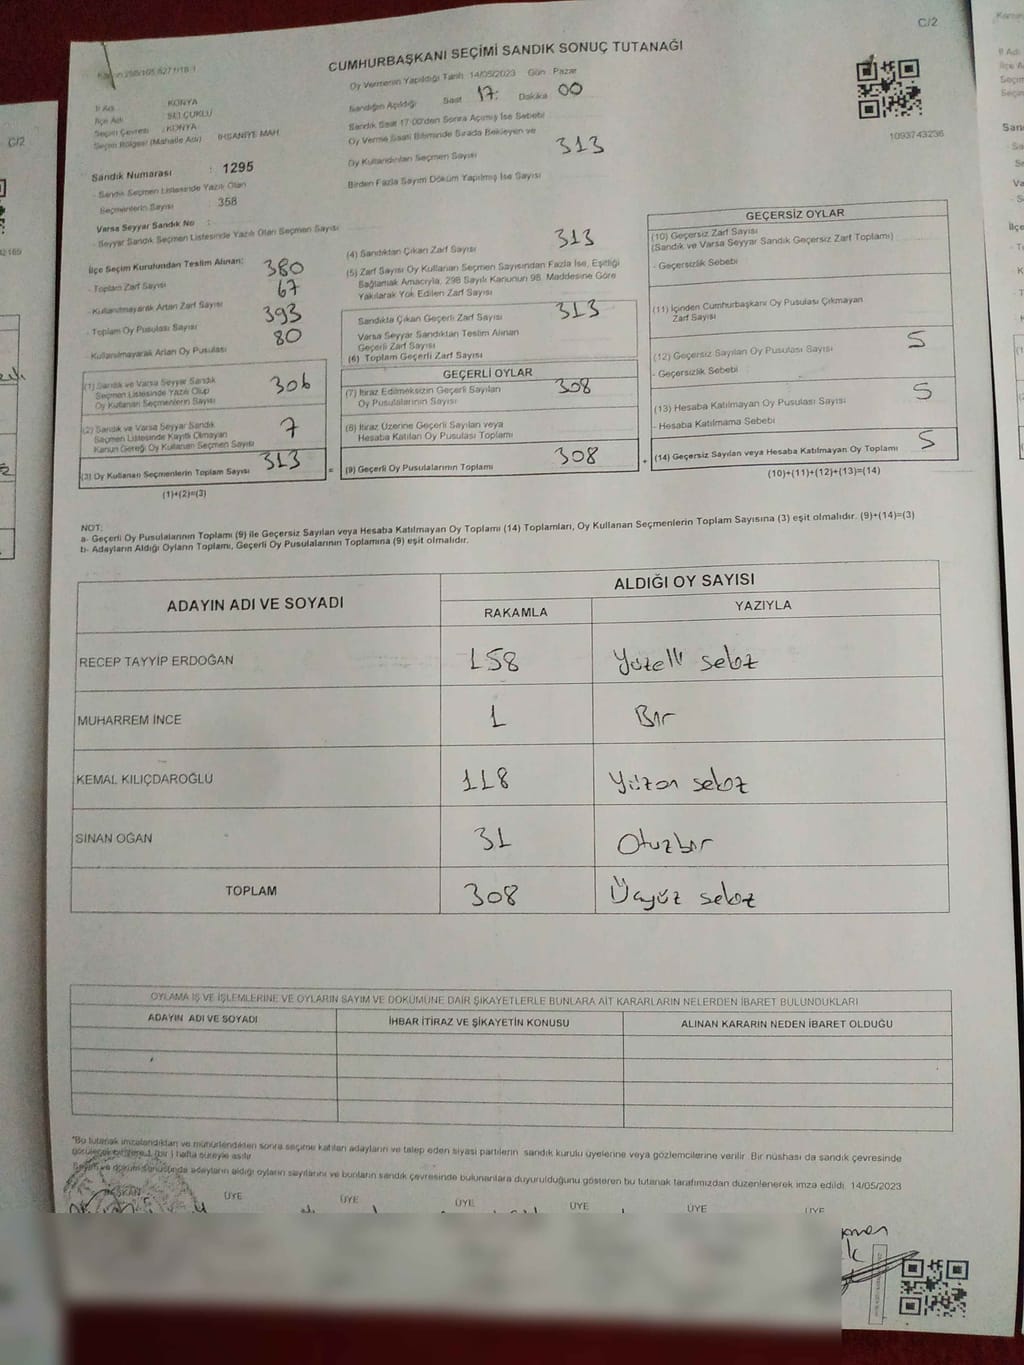 C/2
CUMHURBAŞKANI SEÇİMİ SANDIK SONUÇ TUTANAĞI
Oy Vermenin Yapıldığı Tarih: 14/05/2023 Gün: Pazar
Sandığın Açıldığı Saat 17: Dakika 00
Sandık Saat 17:00'den Sonra Açılmış İse Sebebi
Oy Verme Saati Bitiminde Sırada Bekleyen ve
Oy Kullandırılan Seçmen Sayısı 313
Birden Fazla Sayım Döküm Yapılmış İse Sayısı
1093743236
İl Adı KONYA
İlçe Adı SELÇUKLU
Seçim Çevresi : KONYA
Seçim Bölgesi (Mahalle Adı) İHSANİYE MAH
Sandık Numarası : 1295
- Sandık Seçmen Listesinde Yazılı Olan
Seçmenlerin Sayısı : 358
Varsa Seyyar Sandık No :
- Seyyar Sandık Seçmen Listesinde Yazılı Olan Seçmen Sayısı
İlçe Seçim Kurulundan Teslim Alınan:
- Toplam Zarf Sayısı 380
- Kullanılmayarak Artan Zarf Sayısı 67
- Toplam Oy Pusulası Sayısı 393
- Kullanılmayarak Artan Oy Pusulası 80
(1) Sandık ve Varsa Seyyar Sandık
Seçmen Listesinde Yazılı Olup
Oy Kullanan Seçmenlerin Sayısı 306
(2) Sandık ve Varsa Seyyar Sandık
Seçmen Listesinde Kayıtlı Olmayan
Kanun Gereği Oy Kullanan Seçmen Sayısı 7
(3) Oy Kullanan Seçmenlerin Toplam Sayısı 313
(1)+(2)=(3)
(4) Sandıktan Çıkan Zarf Sayısı 313
(5) Zarf Sayısı Oy Kullanan Seçmen Sayısından Fazla İse, Eşitliği
Sağlamak Amacıyla, 298 Sayılı Kanunun 98. Maddesine Göre
Yakılarak Yok Edilen Zarf Sayısı
Sandıkta Çıkan Geçerli Zarf Sayısı 313
Varsa Seyyar Sandıktan Teslim Alınan
Geçerli Zarf Sayısı
(6) Toplam Geçerli Zarf Sayısı
GEÇERLİ OYLAR
(7) İtiraz Edilmeksizin Geçerli Sayılan
Oy Pusulalarının Sayısı 308
(8) İtiraz Üzerine Geçerli Sayılan veya
Hesaba Katılan Oy Pusulası Toplamı
= (9) Geçerli Oy Pusulalarının Toplamı 308
GEÇERSİZ OYLAR
(10) Geçersiz Zarf Sayısı
(Sandık ve Varsa Seyyar Sandık Geçersiz Zarf Toplamı)
- Geçersizlik Sebebi
(11) İçinden Cumhurbaşkanı Oy Pusulası Çıkmayan
Zarf Sayısı
(12) Geçersiz Sayılan Oy Pusulası Sayısı 5
- Geçersizlik Sebebi
(13) Hesaba Katılmayan Oy Pusulası Sayısı 5
- Hesaba Katılmama Sebebi
+ (14) Geçersiz Sayılan veya Hesaba Katılmayan Oy Toplamı 5
(10)+(11)+(12)+(13)=(14)
NOT:
a- Geçerli Oy Pusulalarının Toplamı (9) ile Geçersiz Sayılan veya Hesaba Katılmayan Oy Toplamı (14) Toplamları, Oy Kullanan Seçmenlerin Toplam Sayısına (3) eşit olmalıdır. (9)+(14)=(3)
b- Adayların Aldığı Oyların Toplamı, Geçerli Oy Pusulalarının Toplamına (9) eşit olmalıdır.
ADAYIN ADI VE SOYADI ALDIĞI OY SAYISI
RAKAMLA YAZIYLA
RECEP TAYYİP ERDOĞAN 158 Yüzelli sekiz
MUHARREM İNCE 1 Bir
KEMAL KILIÇDAROĞLU 118 Yüzon sekiz
SİNAN OĞAN 31 Otuzbir
TOPLAM 308 Üçyüz sekiz
OYLAMA İŞ VE İŞLEMLERİNE VE OYLARIN SAYIM VE DÖKÜMÜNE DAİR ŞİKAYETLERLE BUNLARA AİT KARARLARIN NELERDEN İBARET BULUNDUKLARI
ADAYIN ADI VE SOYADI İHBAR İTİRAZ VE ŞİKAYETİN KONUSU ALINAN KARARIN NEDEN İBARET OLDUĞU
"Bu tutanak imzalandıktan ve mühürlendikten sonra seçime katılan adayların ve talep eden siyasi partilerin sandık kurulu üyelerine veya gözlemcilerine verilir. Bir nüshası da sandık çevresinde
görülecek bir yere 1 (bir) hafta süreyle asılır
Sayım ve döküm sonucunda adayların aldığı oyların sayılarını ve bunların sandık çevresinde bulunanlara duyurulduğunu gösteren bu tutanak tarafımızdan düzenlenerek imza edildi. 14/05/2023
BAŞKAN ÜYE ÜYE ÜYE ÜYE ÜYE ÜYE